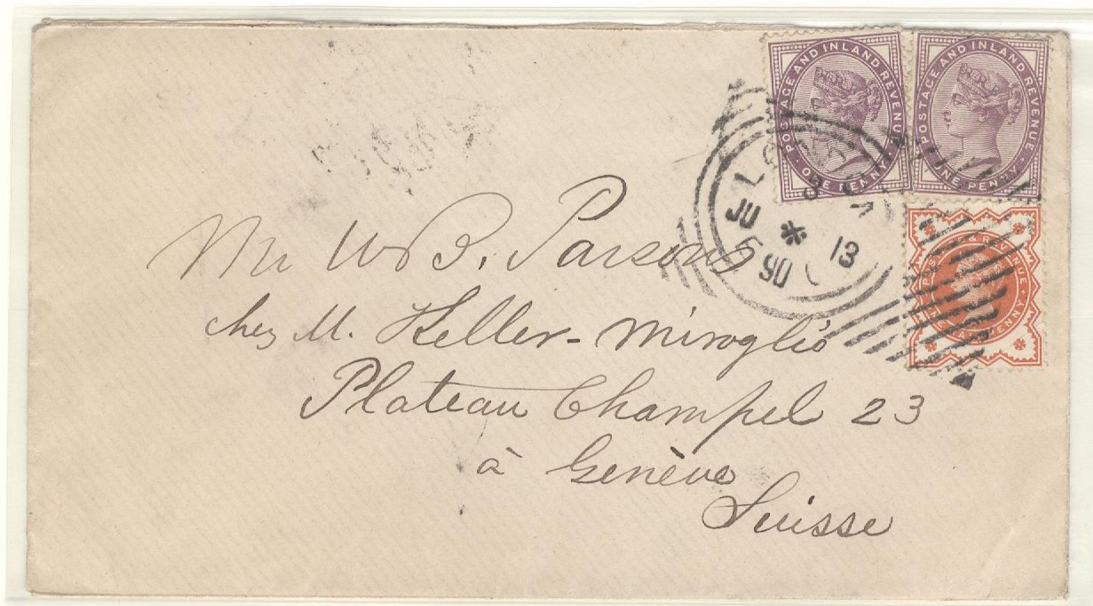 POSTAGE AND INLAND REVENUE
ONE PENNY
POSTAGE AND INLAND REVENUE
ONE PENNY
LONDON
8
JU * 13
5 90
& REVENUE
Mr W B. Parsons
chez M. Heller-Miroglio
Plateau Champel 23
à Genève
Suisse